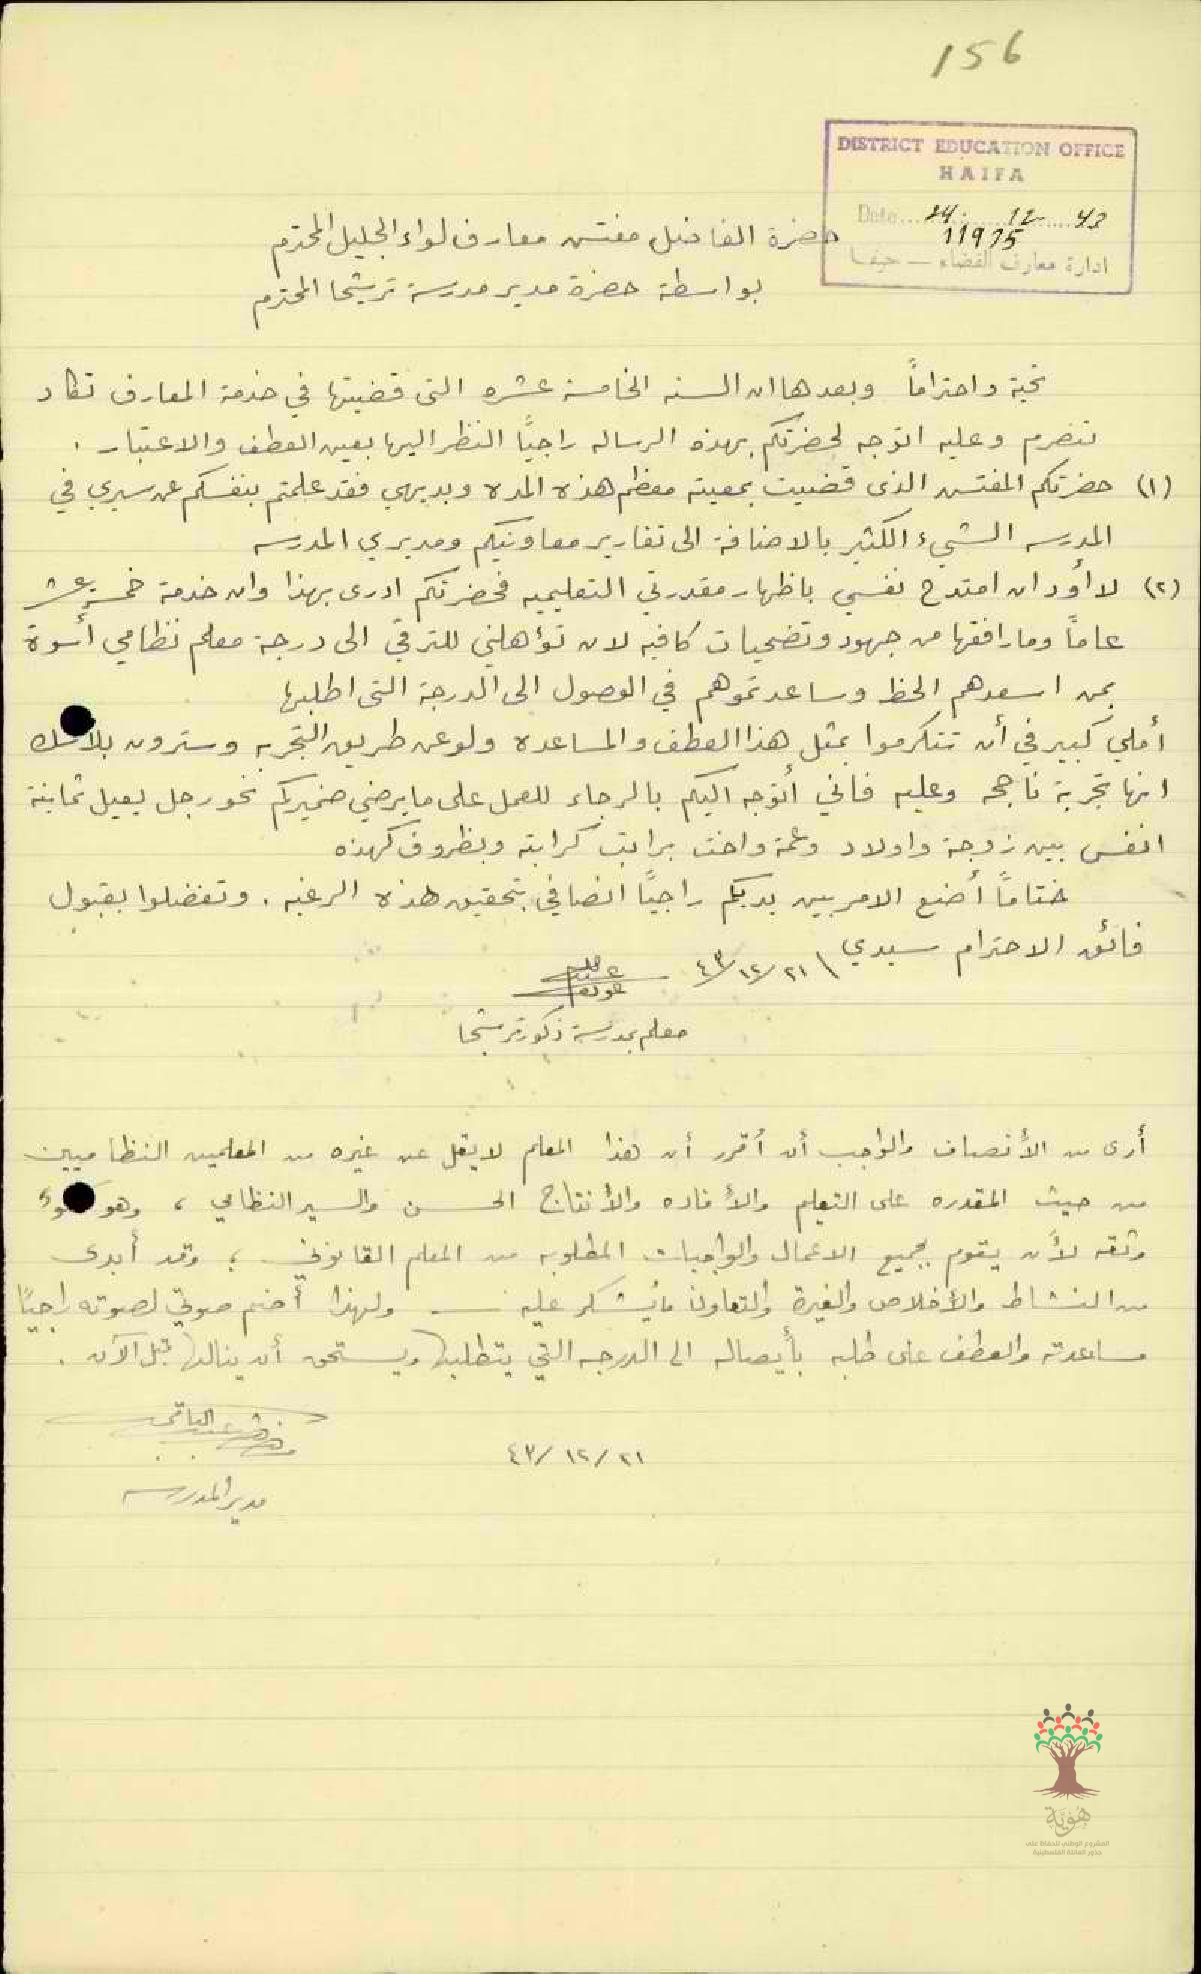 156
DISTRICT EDUCATION OFFICE
HAIFA
Date... 24. ... 12 ... 43
11975
ادارة معارف القضاء – حيفا
حضرة الفاضل مفتش معارف لواء الجليل المحترم
بواسطة حضرة مدير مدرسة ترشيحا المحترم
تحية واحتراماً وبعد ها ان السنه الخامسة عشره التى قضيتها في خدمة المعارف تكاد
تنصرم وعليه اتوجه لحضرتكم بهذه الرساله راجيًا النظر اليها بعين العطف والاعتبار .
(١) حضرتكم المفتش الذى قضيت بمعيته معظم هذه المده وبديهي فقد علمتم بنفسكم عن سيري في
المدرسه الشيء الكثير بالاضافة الى تقارير معاونيكم ومديري المدرسه
(٢) لا أود ان امتدح نفسي باظهار مقدرتي التعليميه فحضرتكم ادرى بهذا وان خدمة خمسة عشر
عاماً وما رافقها من جهود وتضحيات كافيه لان تؤهلني للترقي الى درجة معلم نظامي أسوة
بمن اسعدهم الحظ وساعدتموهم في الوصول الى الدرجة التى اطلبها
أملي كبير في أن تتكرموا بمثل هذا العطف والمساعده ولو عن طريق التجربه وسترون بلا شك
انها تجربة ناجحه وعليه فاني أتوجه اليكم بالرجاء للعمل على ما يرضي ضميركم نحو رجل يعيل ثمانية
انفس بين زوجة واولاد وعمة واخت براتب كراتبه وبظروف كهذه
ختاماً أضع الامر بين يديكم راجيًا انصافي بتحقيق هذه الرغبه . وتفضلوا بقبول
فائق الاحترام سيدي \ ٢١/١٢/٤٣
معلم بمدرسة ذكور ترشيحا
أرى من الأنصاف والواجب أن أقرر أن هذا المعلم لا يقل عن غيره من المعلمين النظاميين
من حيث المقدره على التعليم والأفاده والأنتاج الحسن والسير النظامي ، وهو كفوء
وثقه لأن يقوم بجميع الاعمال والواجبات المطلوبه من المعلم القانوني ؛ وقد أبدى
من النشاط والأخلاص والغيرة والتعاون ما يُشكر عليه ـــ ولهذا أضم صوتي لصوته راجيًا
مساعدته والعطف على طلبه بأيصاله الى الدرجه التي يتطلبها ويستحق أن ينالها قبل الآن .
٢١/١٢/٤٣
مدير المدرسه
هَوِيَّة
المشروع الوطني للحفاظ على
جذور العائلة الفلسطينية